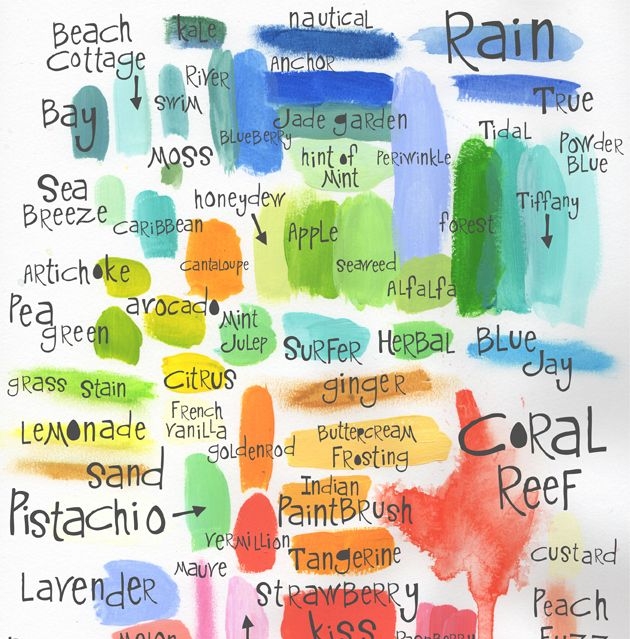 Beach
Cottage
kale
nautical
Rain
River
Anchor
Bay
swim
True
BLUEBERRY
Jade garden
Tidal
Powder
BLUE
MOSS
hint of
Mint
Periwinkle
Sea
BREEZE
honeydew
Tiffany
CARiBBEAN
Apple
forest
Cantaloupe
seaweed
ARtichoke
ALfaLfa
Pea
green
avocado
Mint
Julep
SURFER
HERBAL
BLUE
Jay
grass Stain
CiTRUS
ginger
French
vanilla
LEMONADE
goldenrod
ButterCREAM
FRosting
CORAL
REEF
sand
Indian
PaintBRush
Pistachio
VERMiLLION
TangeRine
custard
mauve
LavendeR
STRAWBERRY
kiss
Peach
Fuzz
Melon
RaspBERRY